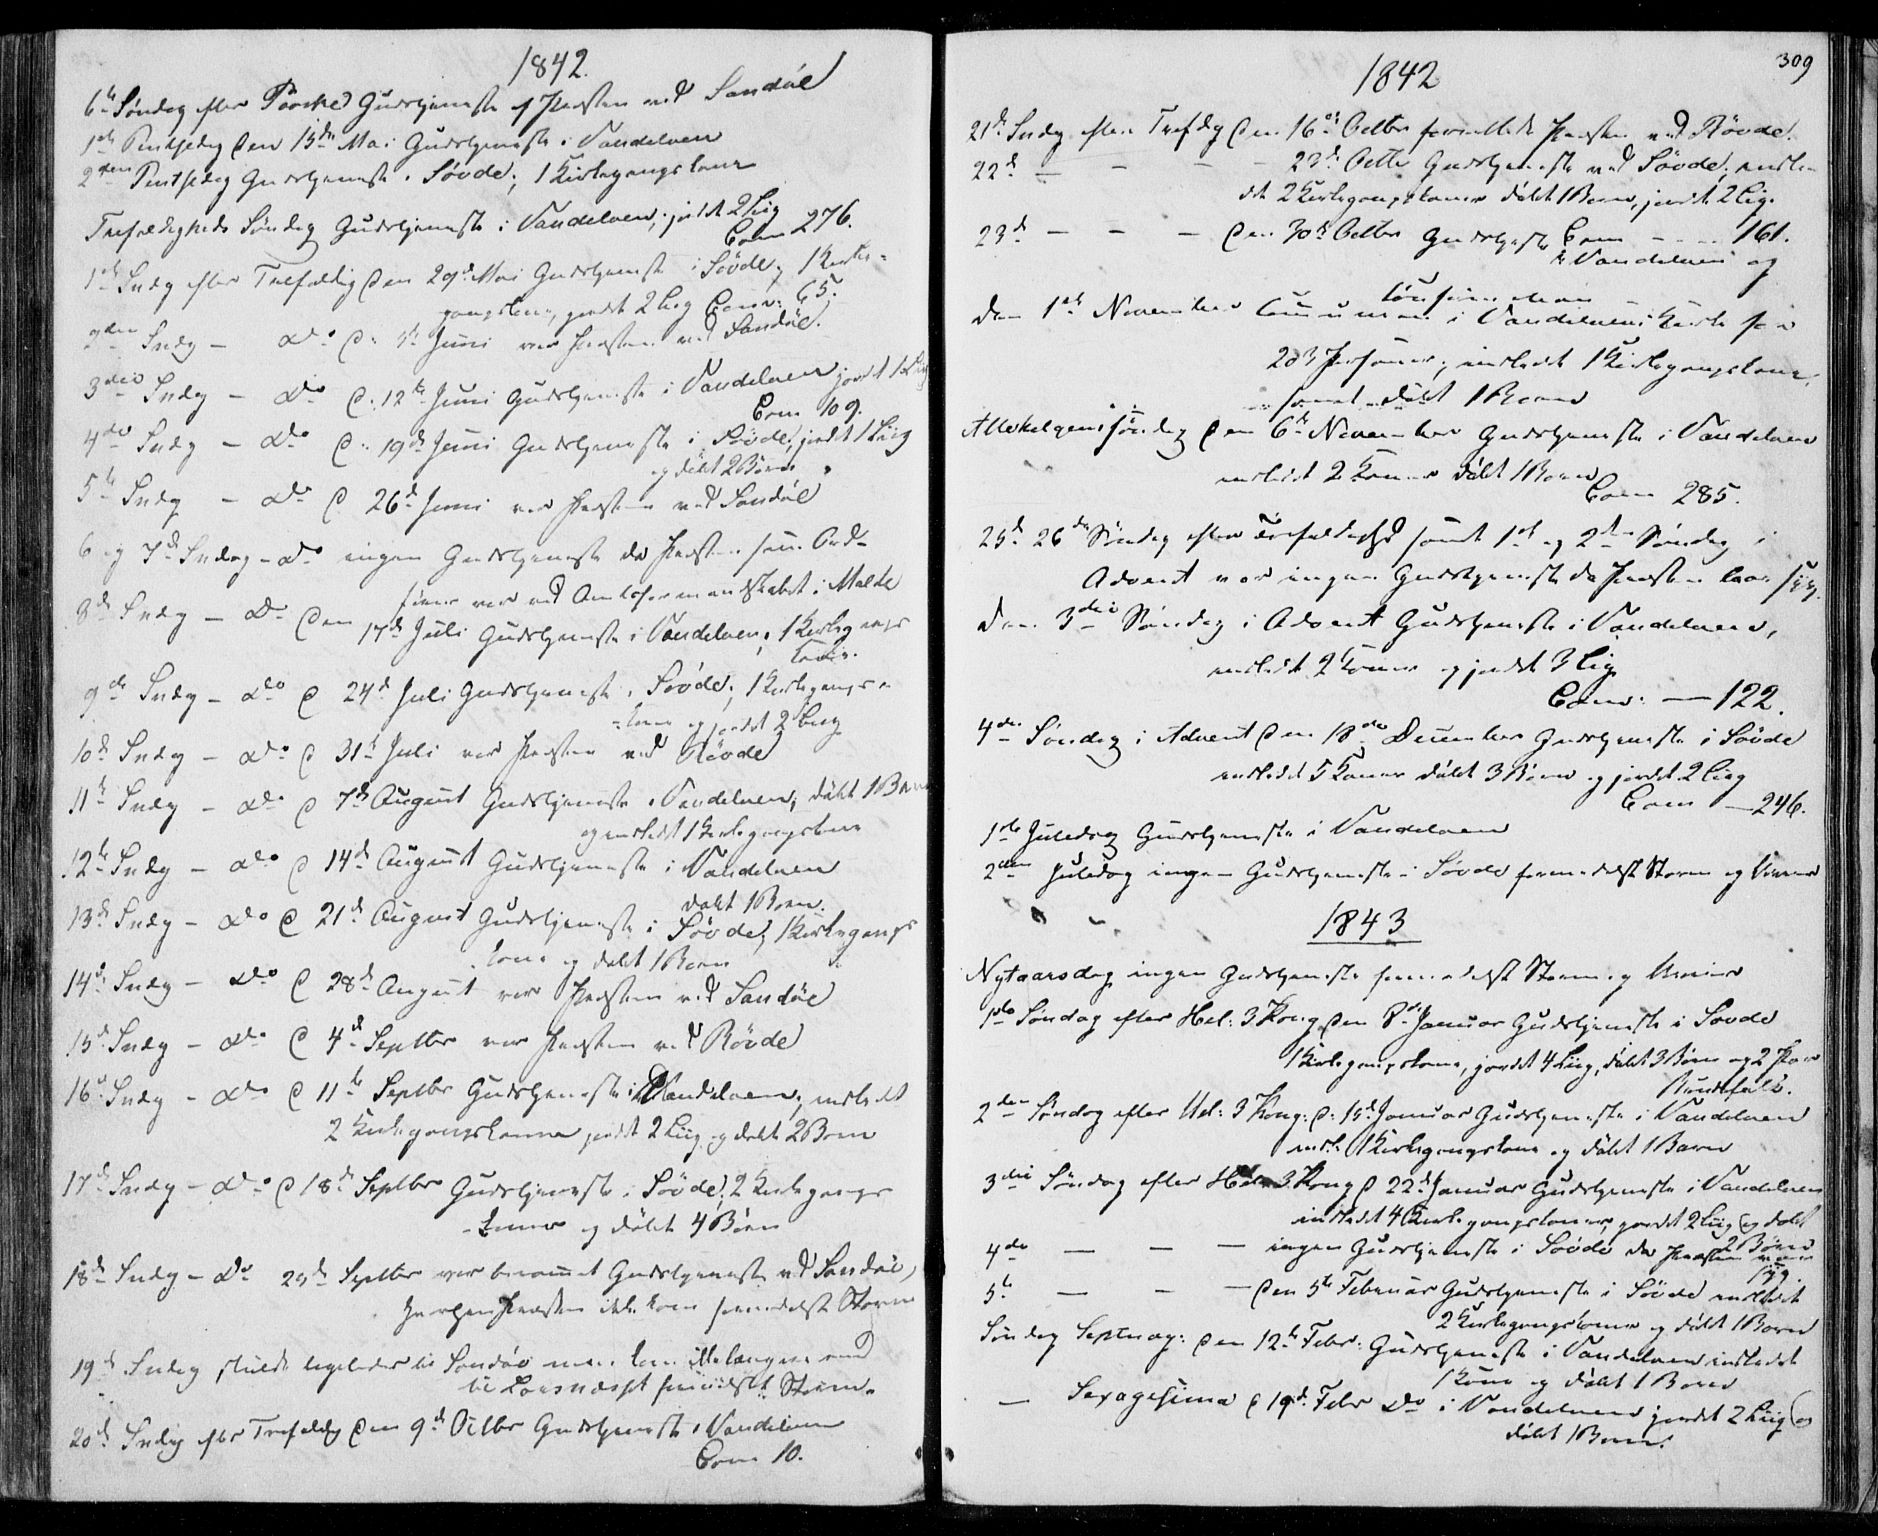 1842.
6te Søndag efter Paaske Gudstjeneste af Præsten ved Sandøe
1ste Pintsedag den 15de Mai Gudstjeneste i Vandelven
2den Pintsedag Gudstjeneste i Søvde; 1 Kirkegangskone
Trefoldigheds Søndag Gudstjeneste i Vandelven; jordet 2 Liig
Com 276.
1ste Sndg efter Trefoldig den 29de Mai Gudstjeneste i Søvde; 1 Kirke-
gangskone, jordet 2 Liig Com: 65.
2den Sndg – do d: 5te Juni var Præsten ved Sandøe.
3die Sndg – do d: 12te Juni Gudstjeneste i Vandelven jordet 1 Liig
Com 109.
4de Sndg – do d: 19de Juni Gudstjeneste i Søvde, jordet 1 Liig
og døbt 2 Børn
5te Sndg – do d 26de Juni var Præsten ved Sandøe
6 og 7de Sndag – do ingen Gudstjeneste da Præsten som Ord-
fører var ved Amtsformandskabet i Molde
8de Sndg – do den 17de Juli Gudstjeneste i Vandelven; 1 Kirkegangs
kone.
9de Sndg – do d 24de Juli Gudstjeneste i Søvde; 1 Kirkegangs-
-kone og jordet 2 Liig
10de Sndg – do d 31te Juli var Præsten ved Røvde
11te Sndg – do d 7de August Gudstjeneste i Vandelven; døbt 1 Barn
og indledt 1 Kirkegangskone
12te Sndg – do d 14de August Gudstjeneste i Vandelven
døbt 1 Barn.
13de Sndg – do d 21de August Gudstjeneste i Søvde; 1 Kirkegangs
kone og døbt 1 Barn
14de Sndg – do d 28de August var Præsten ved Sandøe
15de Sndg – do d 4de Septbr var Præsten ved Røvde
16de Sndg – do d 11te Septbr Gudstjeneste i Vandelven; indledt
2 Kirkegangskoner jordet 2 Liig og døbt 2 Børn
17de Sndg – do d 18de Septbr Gudstjeneste i Søvde; 2 Kirkegangs
-koner og døbt 4 Børn
18de Sndg – do 25de Septbr var berammet Gudstjeneste ved Sandøe,
Præsten ikke kom formedelst Storm
19de Sndag skulde ligeledes til Sandøe men kom ikke længere end
til formedelst Storm.
20de Sndg efter Trefoldg den 9de Octbr Gudstjeneste i Vandelven
Com 10.
309
1842
21de Sndg efter Trefdg den 16de Octbr Præsten ved Røvde.
22de – – – 23de Octbr Gudstjeneste ved Søvde, indle-
dt 2 Kirkegangskoner døbt 1 Barn, jordet 2 Liig.
23de – – – den 30te Octbr Gudstjeneste Com – – – 161.
i Vandelven og
den 1ste November Communion i Vandelvens Kirke for
203 Personer; indledt 1 Kirkegangskone,
samt døbt 1 Barn
Allehelgens søndag den 6te November Gudstjeneste i Vandelven
indledt 2 Koner døbt 1 Barn
Com 285.
25de 26de Søndag efter Trefoldighed samt 1ste og 2den Søndag i
Advent var ingen Gudstjeneste da Præsten laae syg.
den 3die Søndag i Advent Gudstjeneste i Vandelven,
indledt 2 Koner og jordet 3 Liig
Com: – 122.
4de Søndag i Advent den 18de December Gudstjeneste i Søvde
indledt 5 Koner døbt 3 Børn og jordet 2 Liig
Com – 246.
1ste Juledag Gudstjeneste i Vandelven
2den Juledag ingen Gudstjeneste i Søvde formedelst Storm og Uveir
1843
Nytaarsdag ingen Gudstjeneste formedelst Storm og Uveir
1ste Søndag efter Hel: 3 Kong den 8de Januar Gudstjeneste i Søvde
1 Kirkegangskone, jordet 4 Liig, døbt 3 Børn og 2 Par
Brudefolk.
2den Søndag efter Hel: 3 Kong: d: 15de Januar Gudstjeneste i Vandelven
indl: 1 Kirkegangskone og døbt 1 Barn
3die Søndag efter Hel 3 Kong d 22de Januar Gudstjeneste i Vandelven
indledt 4 Kirkegangskoner, jordet 2 Liig og døbt
2 Børn
4de – – – ingen Gudstjeneste i Søvde da Præsten var
syg.
5te – – – den 5te Februar Gudstjeneste i Søvde indledt
2 Kirkegangskoner og døbt 1 Barn
Søndag Septuag: den 12te Febr: Gudstjeneste i Vandelven indledet
1 Kone og døbt 1 Barn
– Sexagesima d 19de Febr do i Vandelven jordet 2 Liig og
døbt 1 Barn.